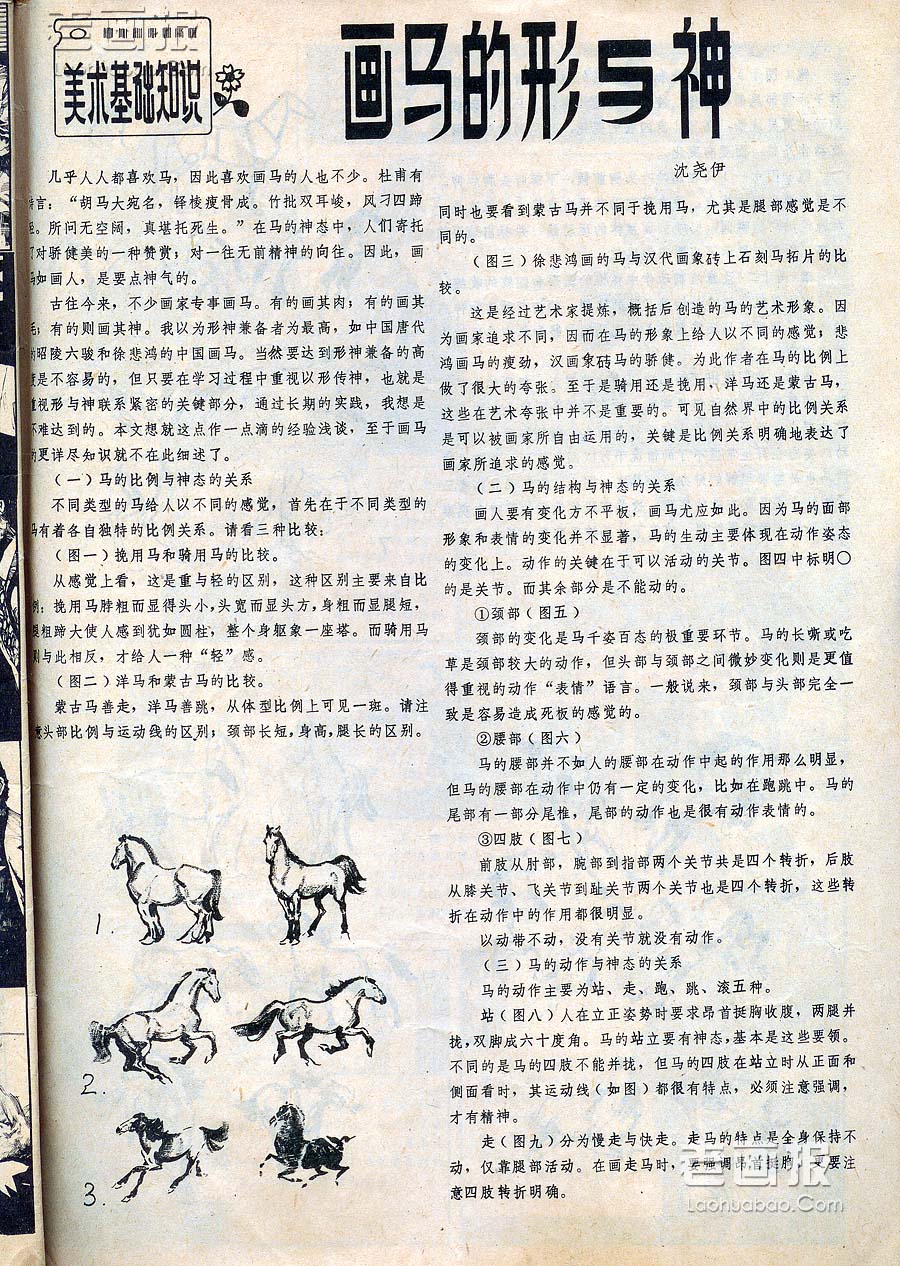 老画报
Laohuabao.Com
美术基础知识
画马的形与神
沈尧伊
几乎人人都喜欢马，因此喜欢画马的人也不少。杜甫有
言：“胡马大宛名，锋棱瘦骨成。竹批双耳峻，风刁四蹄
。所问无空阔，真堪托死生。”在马的神态中，人们寄托
对骄健美的一种赞赏；对一往无前精神的向往。因此，画
马如画人，是要点神气的。
古往今来，不少画家专事画马。有的画其肉；有的画其
毛；有的则画其神。我以为形神兼备者为最高，如中国唐代
的昭陵六骏和徐悲鸿的中国画马。当然要达到形神兼备的高
度是不容易的，但只要在学习过程中重视以形传神，也就是
重视形与神联系紧密的关键部分，通过长期的实践，我想是
不难达到的。本文想就这点作一点滴的经验浅谈，至于画马
的更详尽知识就不在此细述了。
（一）马的比例与神态的关系
不同类型的马给人以不同的感觉，首先在于不同类型的
马有着各自独特的比例关系。请看三种比较：
（图一）挽用马和骑用马的比较。
从感觉上看，这是重与轻的区别，这种区别主要来自比
例；挽用马脖粗而显得头小，头宽而显头方，身粗而显腿短，
腿粗蹄大使人感到犹如圆柱，整个身躯象一座塔。而骑用马
则与此相反，才给人一种“轻”感。
（图二）洋马和蒙古马的比较。
蒙古马善走，洋马善跳，从体型比例上可见一班。请注
意头部比例与运动线的区别；颈部长短，身高，腿长的区别。
1.
2.
3.
同时也要看到蒙古马并不同于挽用马，尤其是腿部感觉是不
同的。
（图三）徐悲鸿画的马与汉代画象砖上石刻马拓片的比
较。
这是经过艺术家提炼，概括后创造的马的艺术形象。因
为画家追求不同，因而在马的形象上给人以不同的感觉；悲
鸿画马的瘦劲，汉画象砖马的骄健。为此作者在马的比例上
做了很大的夸张。至于是骑用还是挽用，洋马还是蒙古马，
这些在艺术夸张中并不是重要的。可见自然界中的比例关系
是可以被画家所自由运用的，关键是比例关系明确地表达了
画家所追求的感觉。
（二）马的结构与神态的关系
画人要有变化方不平板，画马尤应如此。因为马的面部
形象和表情的变化并不显著，马的生动主要体现在动作姿态
的变化上。动作的关键在于可以活动的关节。图四中标明○
的是关节。而其余部分是不能动的。
①颈部（图五）
颈部的变化是马千姿百态的极重要环节。马的长嘶或吃
草是颈部较大的动作，但头部与颈部之间微妙变化则是更值
得重视的动作“表情”语言。一般说来，颈部与头部完全一
致是容易造成死板的感觉的。
②腰部（图六）
马的腰部并不如人的腰部在动作中起的作用那么明显，
但马的腰部在动作中仍有一定的变化，比如在跑跳中。马的
尾部有一部分尾椎，尾部的动作也是很有动作表情的。
③四肢（图七）
前肢从肘部，腕部到指部两个关节共是四个转折，后肢
从膝关节、飞关节到趾关节两个关节也是四个转折，这些转
折在动作中的作用都很明显。
以动带不动，没有关节就没有动作。
（三）马的动作与神态的关系
马的动作主要为站、走、跑、跳、滚五种。
站（图八）人在立正姿势时要求昂首挺胸收腹，两腿并
拢，双脚成六十度角。马的站立要有神态，基本是这些要领。
不同的是马的四肢不能并拢，但马的四肢在站立时从正面和
侧面看时，其运动线（如图）都很有特点，必须注意强调，
才有精神。
走（图九）分为慢走与快走。走马的特点是全身保持不
动，仅靠腿部活动。在画走马时，要强调昂首挺胸，更要注
意四肢转折明确。
老画报
Laohuabao.Com